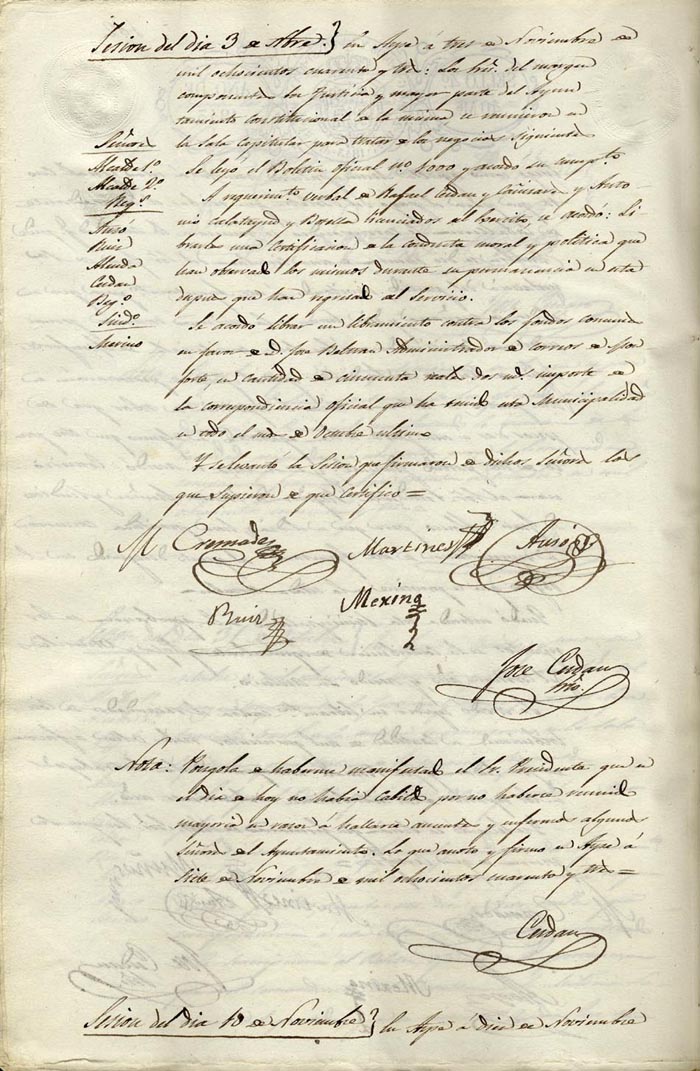 Sesion del dia 3 de Nbre. } En Aspe á tres de Noviembre de
mil ochocientos cuarenta y tres: Los Sres. del margen
componentes la Justicia y mayor parte del Ayun
tamiento constitucional de la misma se reunieron en
la Sala Capitular para tratar de los negocios siguientes
Señores
Alcalde 1º.
Alcalde 2º.
Regs.
Ausó
Ruiz
Almda
Cerdan
Bego.
Sindo.
Merino
Se leyó el Boletin oficial nº. 1000 y acordo su cumpto.
A requerimto. verbal de Rafael Cerdan y Cañizares y Anto
nio Calatayud y Botella licenciados del Ejercito, se acordó: Li
brarles una Certificacion de la conducta moral y politica que
han observado los mismos durante su permanencia en esta
despues que han regresado del Servicio.
Se acordó librar un libramiento contra los fondos comunes
en favor de D. Jose Beltran Administrador de correos de Mon
forte en cantidad de cincuenta reales dos ms. importe de
la correspondencia oficial que ha tenido esta Municipalidad
en todo el mes de Octubre ultimo
Y se levantó la Sesion que firmaron de dichos Señores los
que supieron de que certifico =
M Cremades Martinez Ausó
Ruiz Merino
Jose Cerdan
Srio.
Nota: Pongola de haberme manifestado el Sr. Presidente que en
el dia de hoy no habia Cabildo por no haberse reunido
mayoria en razon á hallarse ausentes y enfermos algunos
Señores del Ayuntamiento. Lo que anoto y firmo en Aspe á
Siete de Noviembre de mil ochocientos cuarenta y tres =
Cerdan
Sesion del dia 10 de Noviembre } En Aspe á diez de Noviembre